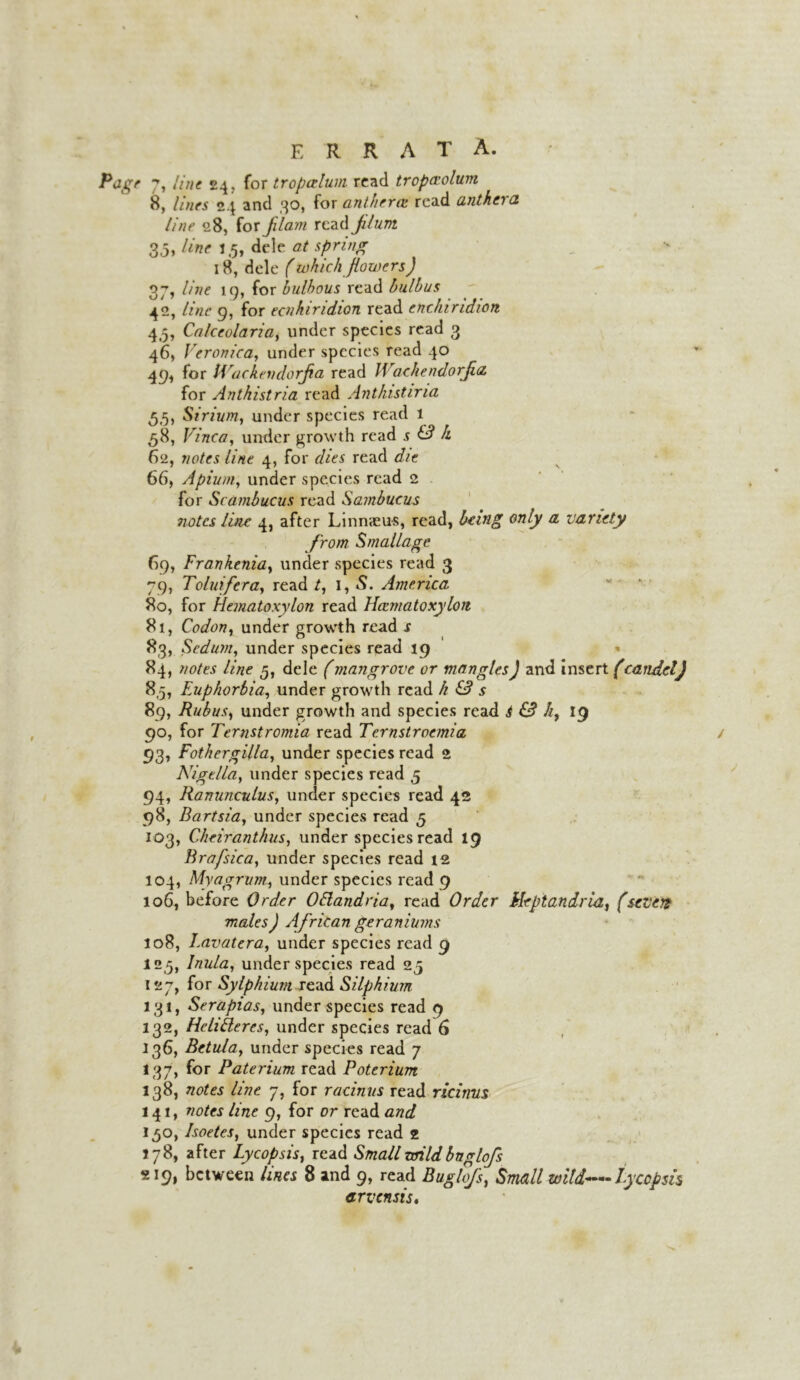 ERRATA.
Page 7, line 24, for tropœlum read tropœolum
8, lines 24 and 30, for antheræ read anthera
line 28, for filam read filum
35, line 15, dele at spring
18, dele (which flowers)
37, line 19, for bulbous read bulbus
42, line 9, for ecnhiridion read enchiridion
45, Calceolaria, under species read 3
46, Veronica, under species read 40
49, for Wackendorfia read Wachendorfia
for Anthistria read Anthistiria
55, Sirium, under species read 1
58, Vinca, under growth read s & h
62, notes line 4, for dies read die
66, Apium, under species read 2
for Scambucus read Sambucus
notes line 4, after Linnæus, read, being only a variety
from Smallage
69, Frankenia, under species read 3
79, Toluifera, read t, 1, S. America
80, for Hematoxylon read Hæmatoxylon
81, Codon, under growth read s
83, Sedum, under species read 19
84, notes line 5, dele (mangrove or mangles) and insert (candel)
85, Euphorbia, under growth read h & s
89, Rubus, under growth and species read s & h, 19
90, for Ternstromia read Ternstroemia
93, Fothergilla, under species read 2
Nigella, under species read 5
94, Ranunculus, under species read 42
98, Bartsia, under species read 5
103, Cheiranthus, under species read 19
Brafsica, under species read 12
104, Myagrum, under species read 9
106, before Order Octandria, read Order Heptandria, (seven
males) African geraniums
108, Lavatera, under species read 9
125, Inula, under species read 25
127, for Sylphium read Silphium
131, Serapias, under species read 9
132, Helicteres, under species read 6
136, Betula, under species read 7
137, for Paterium read Poterium
138, notes line 7, for racinus read ricinus
141, notes line 9, for or read and
150, Isoetes, under species read 2
178, after Lycopsis, read Small wild buglofs
219, between lines 8 and 9, read Buglofs, Small wild—— Lycopsis
arvensis.